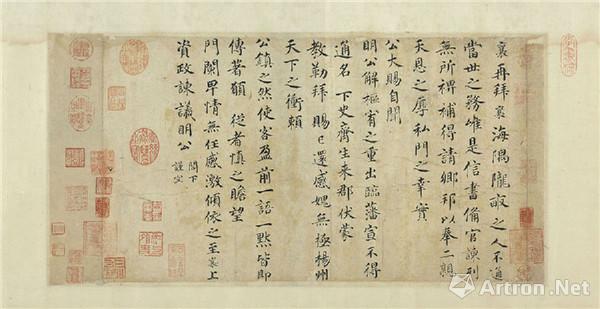 襄再拜襄海隅隴畝之人不通
當世之務唯是信書備官諫列
無所裨補得請鄉邦以奉二親
天恩之厚私門之幸實
公大賜自聞
明公解樞宥之重出臨藩宣不得
通名下史齊生來郡伏蒙
教勒拜賜已還感愧無極揚州
天下之衝賴
公鎮之然使客盈前一語一默皆即
傳著願從者慎之瞻望
門闌卑情無任感激傾依之至襄上
資政諫議明公閤下
謹空
Artron.Net